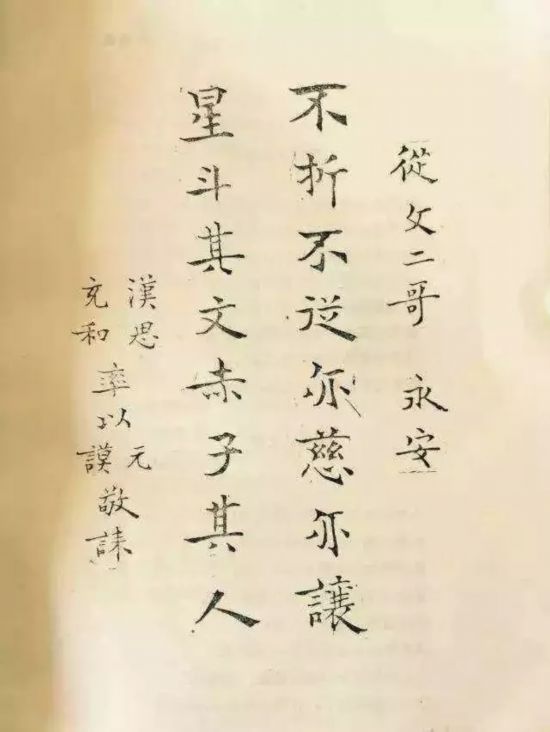 從文二哥 永安
不折不從亦慈亦讓
星斗其文赤子其人
漢思 充和 率以元 謨 敬誄